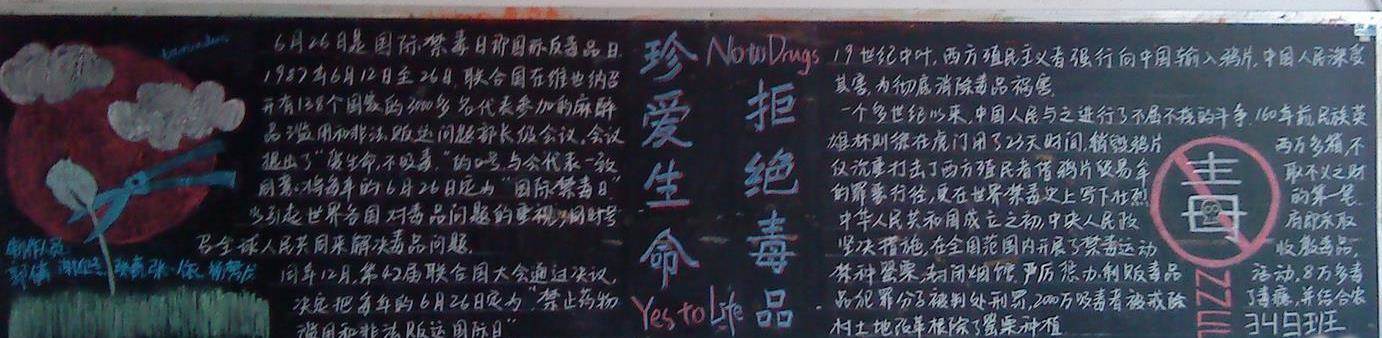 6月26日是国际禁毒日即国际反毒品日.
1987年6月12日至26日,联合国在维也纳召
开有138个国家的3000多名代表参加的麻醉
品滥用和非法贩运问题部长级会议.会议
提出了"爱生命,不吸毒"的口号,与会代表一致
同意将每年的6月26日定为"国际禁毒日"
以引起世界各国对毒品问题的重视,同时号
召全球人民共同来解决毒品问题.
同年12月,第42届联合国大会通过决议,
决定把每年的6月26日定为"禁止药物
滥用和非法贩运国际日"
制作人员
珍爱生命
No to Drugs
拒绝毒品
Yes to Life
19世纪中叶,西方殖民主义者强行向中国输入鸦片,中国人民深受
其害,为彻底消除毒品祸害,
一个多世纪以来,中国人民与之进行了不屈不挠的斗争.160年前,民族英
雄林则徐在虎门用了23天时间,销毁鸦片 两万多箱,不
仅沉重打击了西方殖民者借鸦片贸易牟 取不义之财
的罪恶行径,更在世界禁毒史上写下壮烈 的第一笔.
中华人民共和国成立之初,中央人民政 府即采取
坚决措施,在全国范围内开展了禁毒运动 收缴毒品,
禁种罂粟,封闭烟馆,严厉惩办制贩毒品 活动,8万多毒
品犯罪分子被判处刑罚,2000万吸毒者被戒除 了毒瘾,并结合农
村土地改革根除了罂粟种植
毒
349班